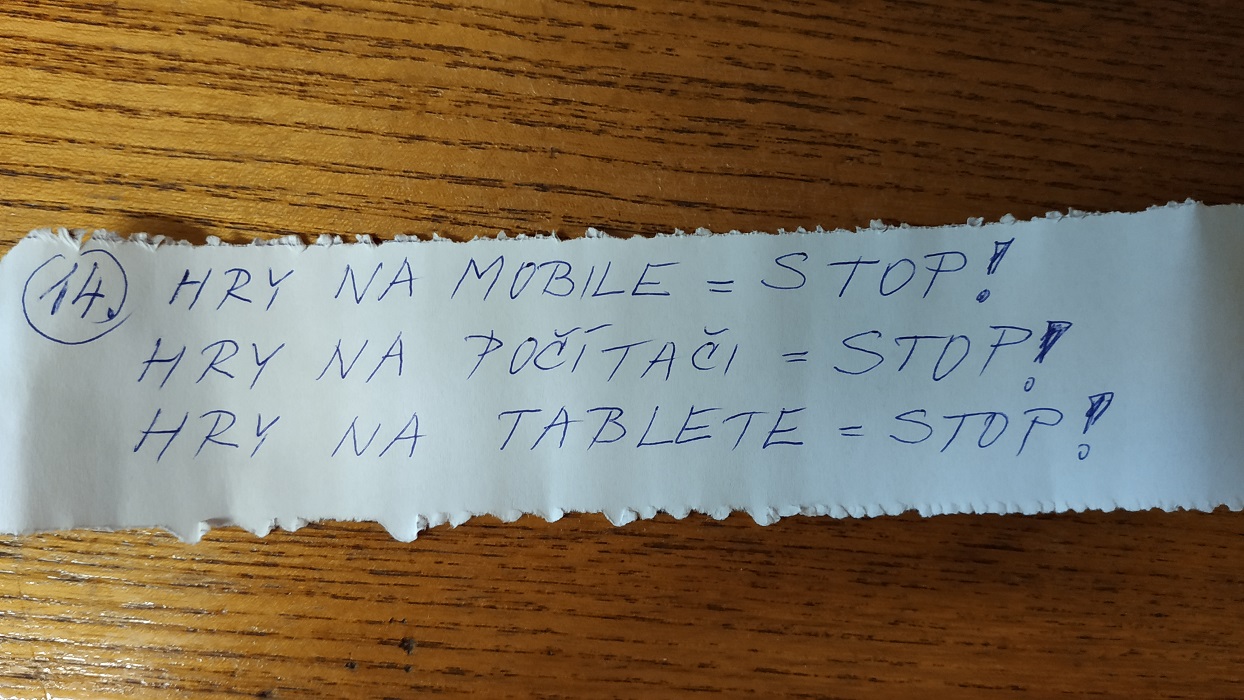 14. HRY NA MOBILE = STOP!
HRY NA POČÍTAČI = STOP!
HRY NA TABLETE = STOP!